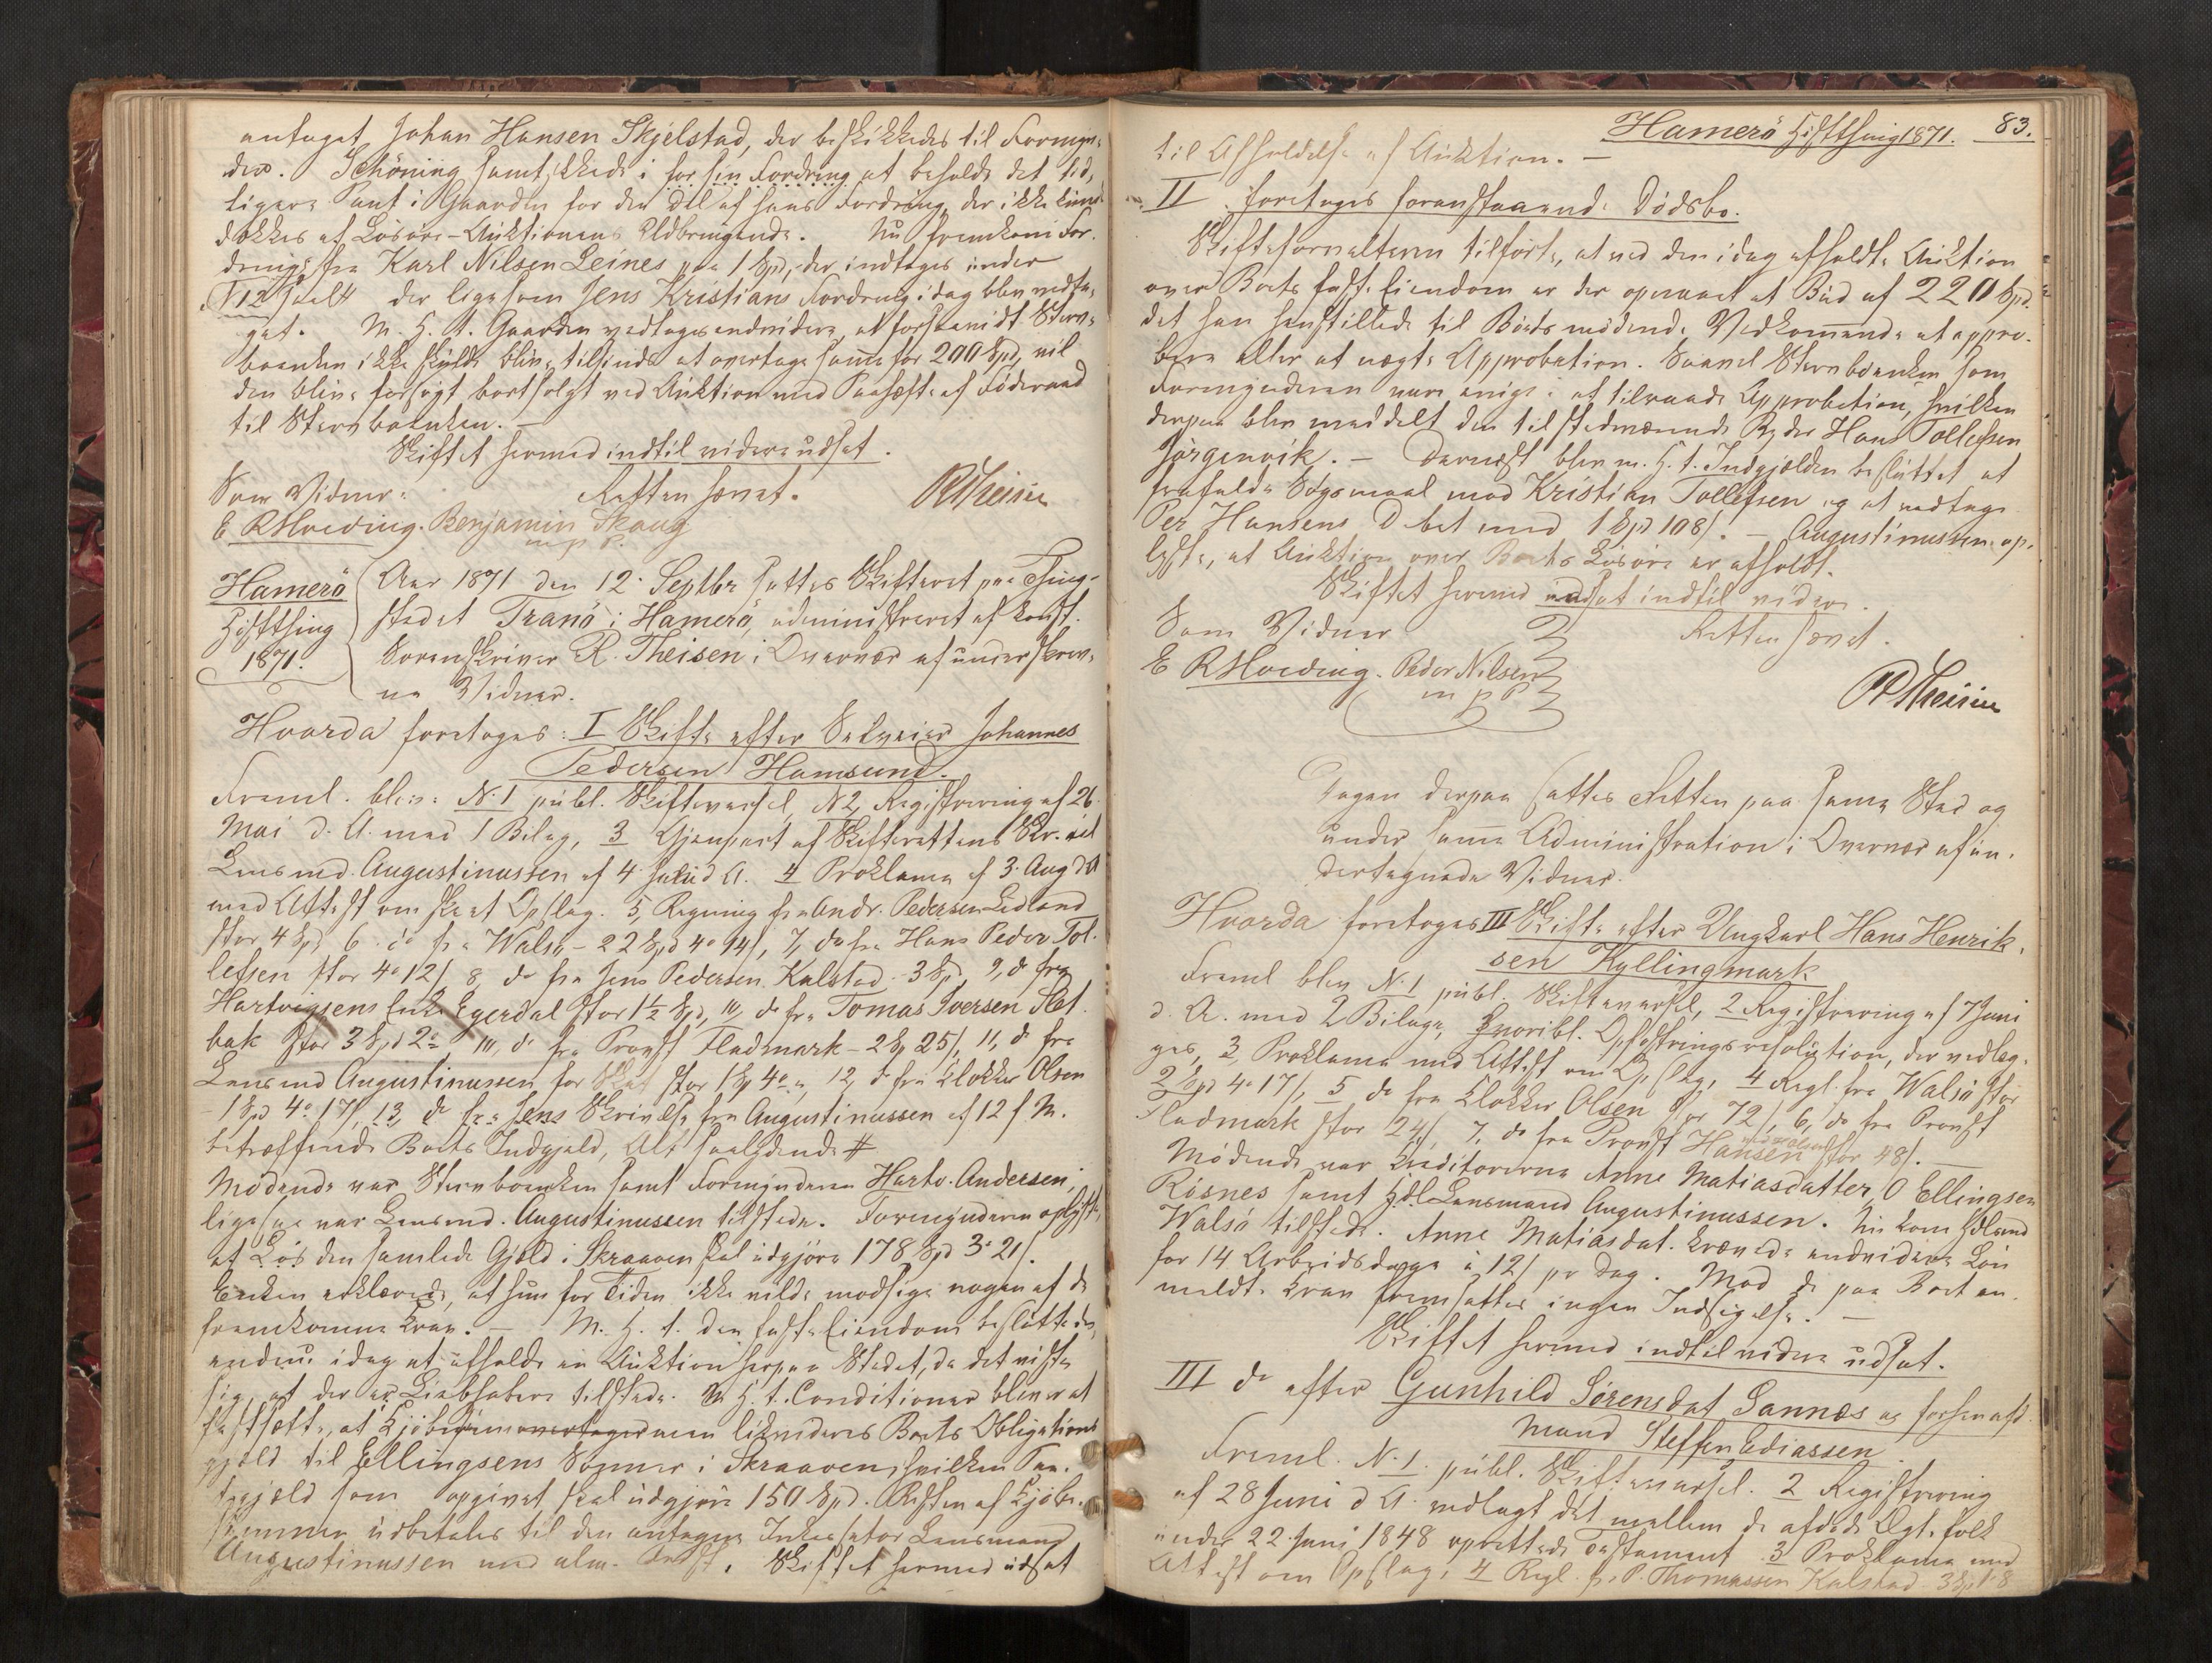 antaget Johan Hansen Skjelstad, der beskikkedes til Formyn-
der. Schöning samtykkede i for sin Fordring at beholde det tid-
ligere Pant i Gaarden for den Del af hans Fordring, der ikke kunde
dækkes af Lösöre-Auktionens Udbringende. Nu fremkom For-
dring fra Karl Nilsen Leines paa 1 Spd, der indtages under
N 12 der ligesom Jens Kristians Fordring idag blev vedta-
get. M. H. t. Gaarden vedtoges endvidere, at forsaavidt Sterv-
boenken ikke skulde blive tilsinds at overtage samme for 200 Spd, vil
den blive forsögt bortsolgt ved Auktion med Paahæfte af Föderaad
til Stervboenken. —
Skiftet hermed indtil videre udsat.
Som Vidner: Retten hævet. R Theisen
E R Hveding. Benjamin Skaug
m. p. P.
Hamerö
Höstthing
1871.
Aar 1871 den 12 Septbr sattes Skifteret paa Thing-
stedet Tranö i Hamerö, administreret af konst.
Sorenskriver R. Theisen i Overvær af underskrev-
ne Vidner.
Hvorda foretoges: I Skifte efter Selveier Johannes
Pedersen Hamsund.
Freml. blev: N. 1 publ. Skiftevarsel, N 2, Registrering af 26
Mai d. A. med 1 Bilag, 3 Gjenpart af Skifterettens Skr. til
Lensmd. Augustinussen af 4 Juli d A. 4 Proklama af 3 Aug d A
med Attest om skeet Opslag. 5, Regning fra Andr. Pedersen
stor 4 Spd 6 do fra Walsö - 22 Spd 4 o 14 /, 7, do fra Hans Peder Tol-
lefsen stor 4 o 12 /. 8, do fra Jens Pedersen Kalstad 3 Spd, 9, do fra
Hartvigsens Enke Egerdal stor 1½ Spd, 10, do fra Tomas Iversen
bak stor 3 Spd 2 o 10, do fra Provst Fladmark - 2 Sp 25 /, 11, do fra
Lensmd Augustinussen for Skat stor 1 Sp 4 o 12, do fra Klokker Olsen
- 1 Spd 4 o 17 /, 13, do fra Jens Skrivelse fra Augustinussen af 12 f. M.
betræffende Boets Indgjæld, Alt saalydende #
Mödende var Stervboenken samt Formynderen Hartv. Andersen,
ligesaa var Lensmd. Augustinussen tilstede. Formynderen oplyste,
at den samlede Gjæld i Skraaven skal udgjöre 178 Spd 3 o 21 /.
Enken erklærede, at hun for Tiden ikke vilde modsige nogen af de
fremkomne Krav. — M. H. t. den faste Eiendom besluttedes
endnu idag at afholde en Auktion herpaa Stedet, da det viste
sig, at der er Liebhabere tilstede. M. H. t. Conditioner blev at
fastsætte, at Kjöberen overtager men likvideres Boets Obligations
gjæld til Ellingsens Sönner i Skraaven, hvilken Pan-
tegjæld som opgivet skal udgjöre 150 Spd. Resten af Kjöbe-
summen udbetales til den antagne Inkassator Lensmand
Augustinussen med alm. Skiftet hermed udsat
Hamerö Höstthing 1871. 83.
til Afholdelse af Auktion. —
II. foretoges foranstaaende Dödsbo.
Skifteforvalteren tilförte, at ved den idag afholdte Auktion
over Boets faste Eiendom er der opnaaet et Bud af 220 Spd.
det han henstillede til Boets mödende Vedkommende at appro-
bere eller at nægte Approbation. Saavel Stervboenken som
Formynderen vare enige i at tilraade Approbation, hvilken
derpaa blev meddelt den tilstedeværende Byder Hans Tollefsen
Jörgenvik. — Dernæst blev m. H. t. Indgjælden besluttet at
frafalde Sögsmaal mod Kristian Tollefsen og at vedtage
Per Hansens Debet med 1 Spd 108 /. — Augustinussen op-
lyste, at Auktion over Boets Lösöre er afholdt.
Skiftet hermed udsat indtil videre.
Som Vidner Retten hævet.
E R Hveding. Peder Nilsen
m p P
R Theisen
Dagen derpaa sattes Retten paa samme Sted og
under samme Administration i Overvær af un-
dertegnede Vidner.
Hvorda foretoges III Skifte efter Ungkarl Hans Henrik-
sen Kyllingmark
Freml blev N. 1 publ. Skiftevarsel, 2 Registrering af 7 Juni
d. A. med 2 Bilage, hvoribl. Opfostringsresolution, der vedlæg-
ges, 3, Proklama med Attest om Opslag, 4 Regl. fra Walsö stor
2 Spd 4 o 17 /, 5 do fra Klokker Olsen stor 72 /, 6, do fra Provst
Fladmark stor 24 /, 7, do fra Provst Hansen stor 48 /.
Mödende var Kreditorerne Anne Matiasdatter, O Ellingsen
Rösnes samt Hdl. Lensmand Augustinussen. Nu kom Hdlsmd
Walsö tilstede. Anne Matiasdat. krævede endvidere Lön
for 14 Arbeidsdage à 12 / pr Dag. Mod de paa Boet an-
meldte Krav fremsattes ingen Indsigelse. —
Skiftet hermed indtil videre udsat.
III do efter Gunhild Sörensdat Sannes og forhen afd.
Mand Steffen Ediassen
Freml. N. 1 publ. Skiftevarsel. 2 Registrering
af 28 Juni d A. vedlagt det mellem de afdöde Ægtefolk
under 22 Juni 1848 oprettede Testament 3 Proklama med
Attest om Opslag, 4 Regl. fr. P. Thomassen Kalstad 3 Sp